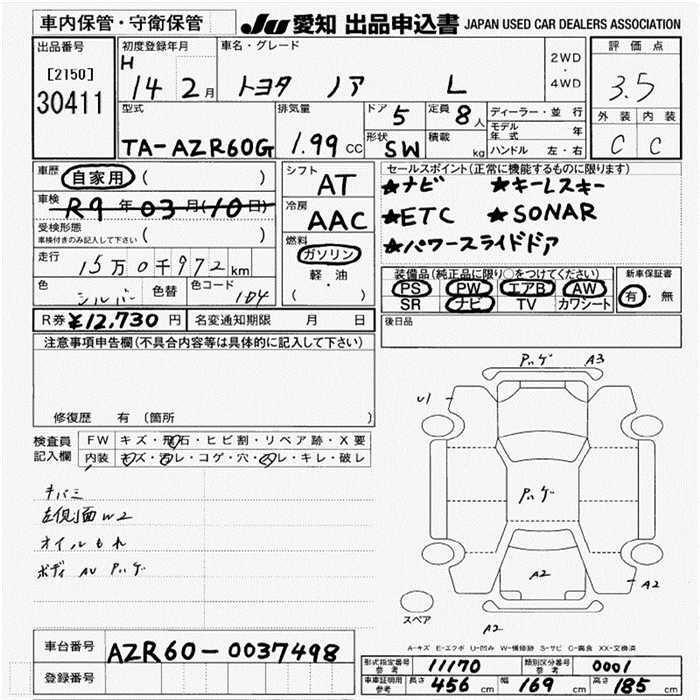 車内保管・守衛保管
JU 愛知 出品申込書 JAPAN USED CAR DEALERS ASSOCIATION
出品番号
[2150]
30411
初度登録年月
H 14 2月
車名・グレード
トヨタ ノア L
2WD
・
4WD
評価点
3.5
外装 内装
C C
型式
TA-AZR60G
排気量
1.99 cc
ドア 5
定員 8人
形状 SW
積載 kg
ディーラー・並行
モデル年式 年
ハンドル 左・右
車歴 自家用 ( )
車検 R9年03月(10日)
受検形態
車検付きのみ記入して下さい ( )
走行 15万0千972km
色 シルバー 色替 色コード 1D4
シフト AT
冷房 AAC
燃料
ガソリン
軽・油
( )
セールスポイント(正常に機能するものに限ります)
★ナビ ★キーレスキー
★ETC ★SONAR
★パワースライドドア
装備品(純正品に限り○をつけてください)
PS PW エアB AW
SR ナビ TV カワシート
新車保証書
有・無
R券 ¥12,730円 名変通知期限 月 日
後日品
注意事項申告欄(不具合内容等は具体的に記入して下さい)
修復歴 有 (箇所 )
検査員記入欄
FW キズ・飛石・ヒビ割・リペア跡・X要
内装 キズ・汚レ・コゲ・穴・スレ・キレ・破レ
キバミ
左側面W2
オイルもれ
ボディ AU ハゲ
ハゲ A3
U1
ハゲ
A2
A2
スペア
A2
A-キズ E-エクボ U-凹み W-補修跡 S-サビ C-腐食 XX-交換済
車台番号 AZR60-0037498
登録番号
形式指定番号参考 11170 類別区分番号参考 0001
車庫証明用参考 長さ 456 cm 幅 169 cm 高さ 185 cm